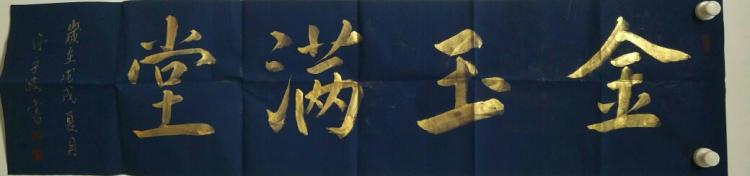 金玉满堂
岁在戊戌夏月